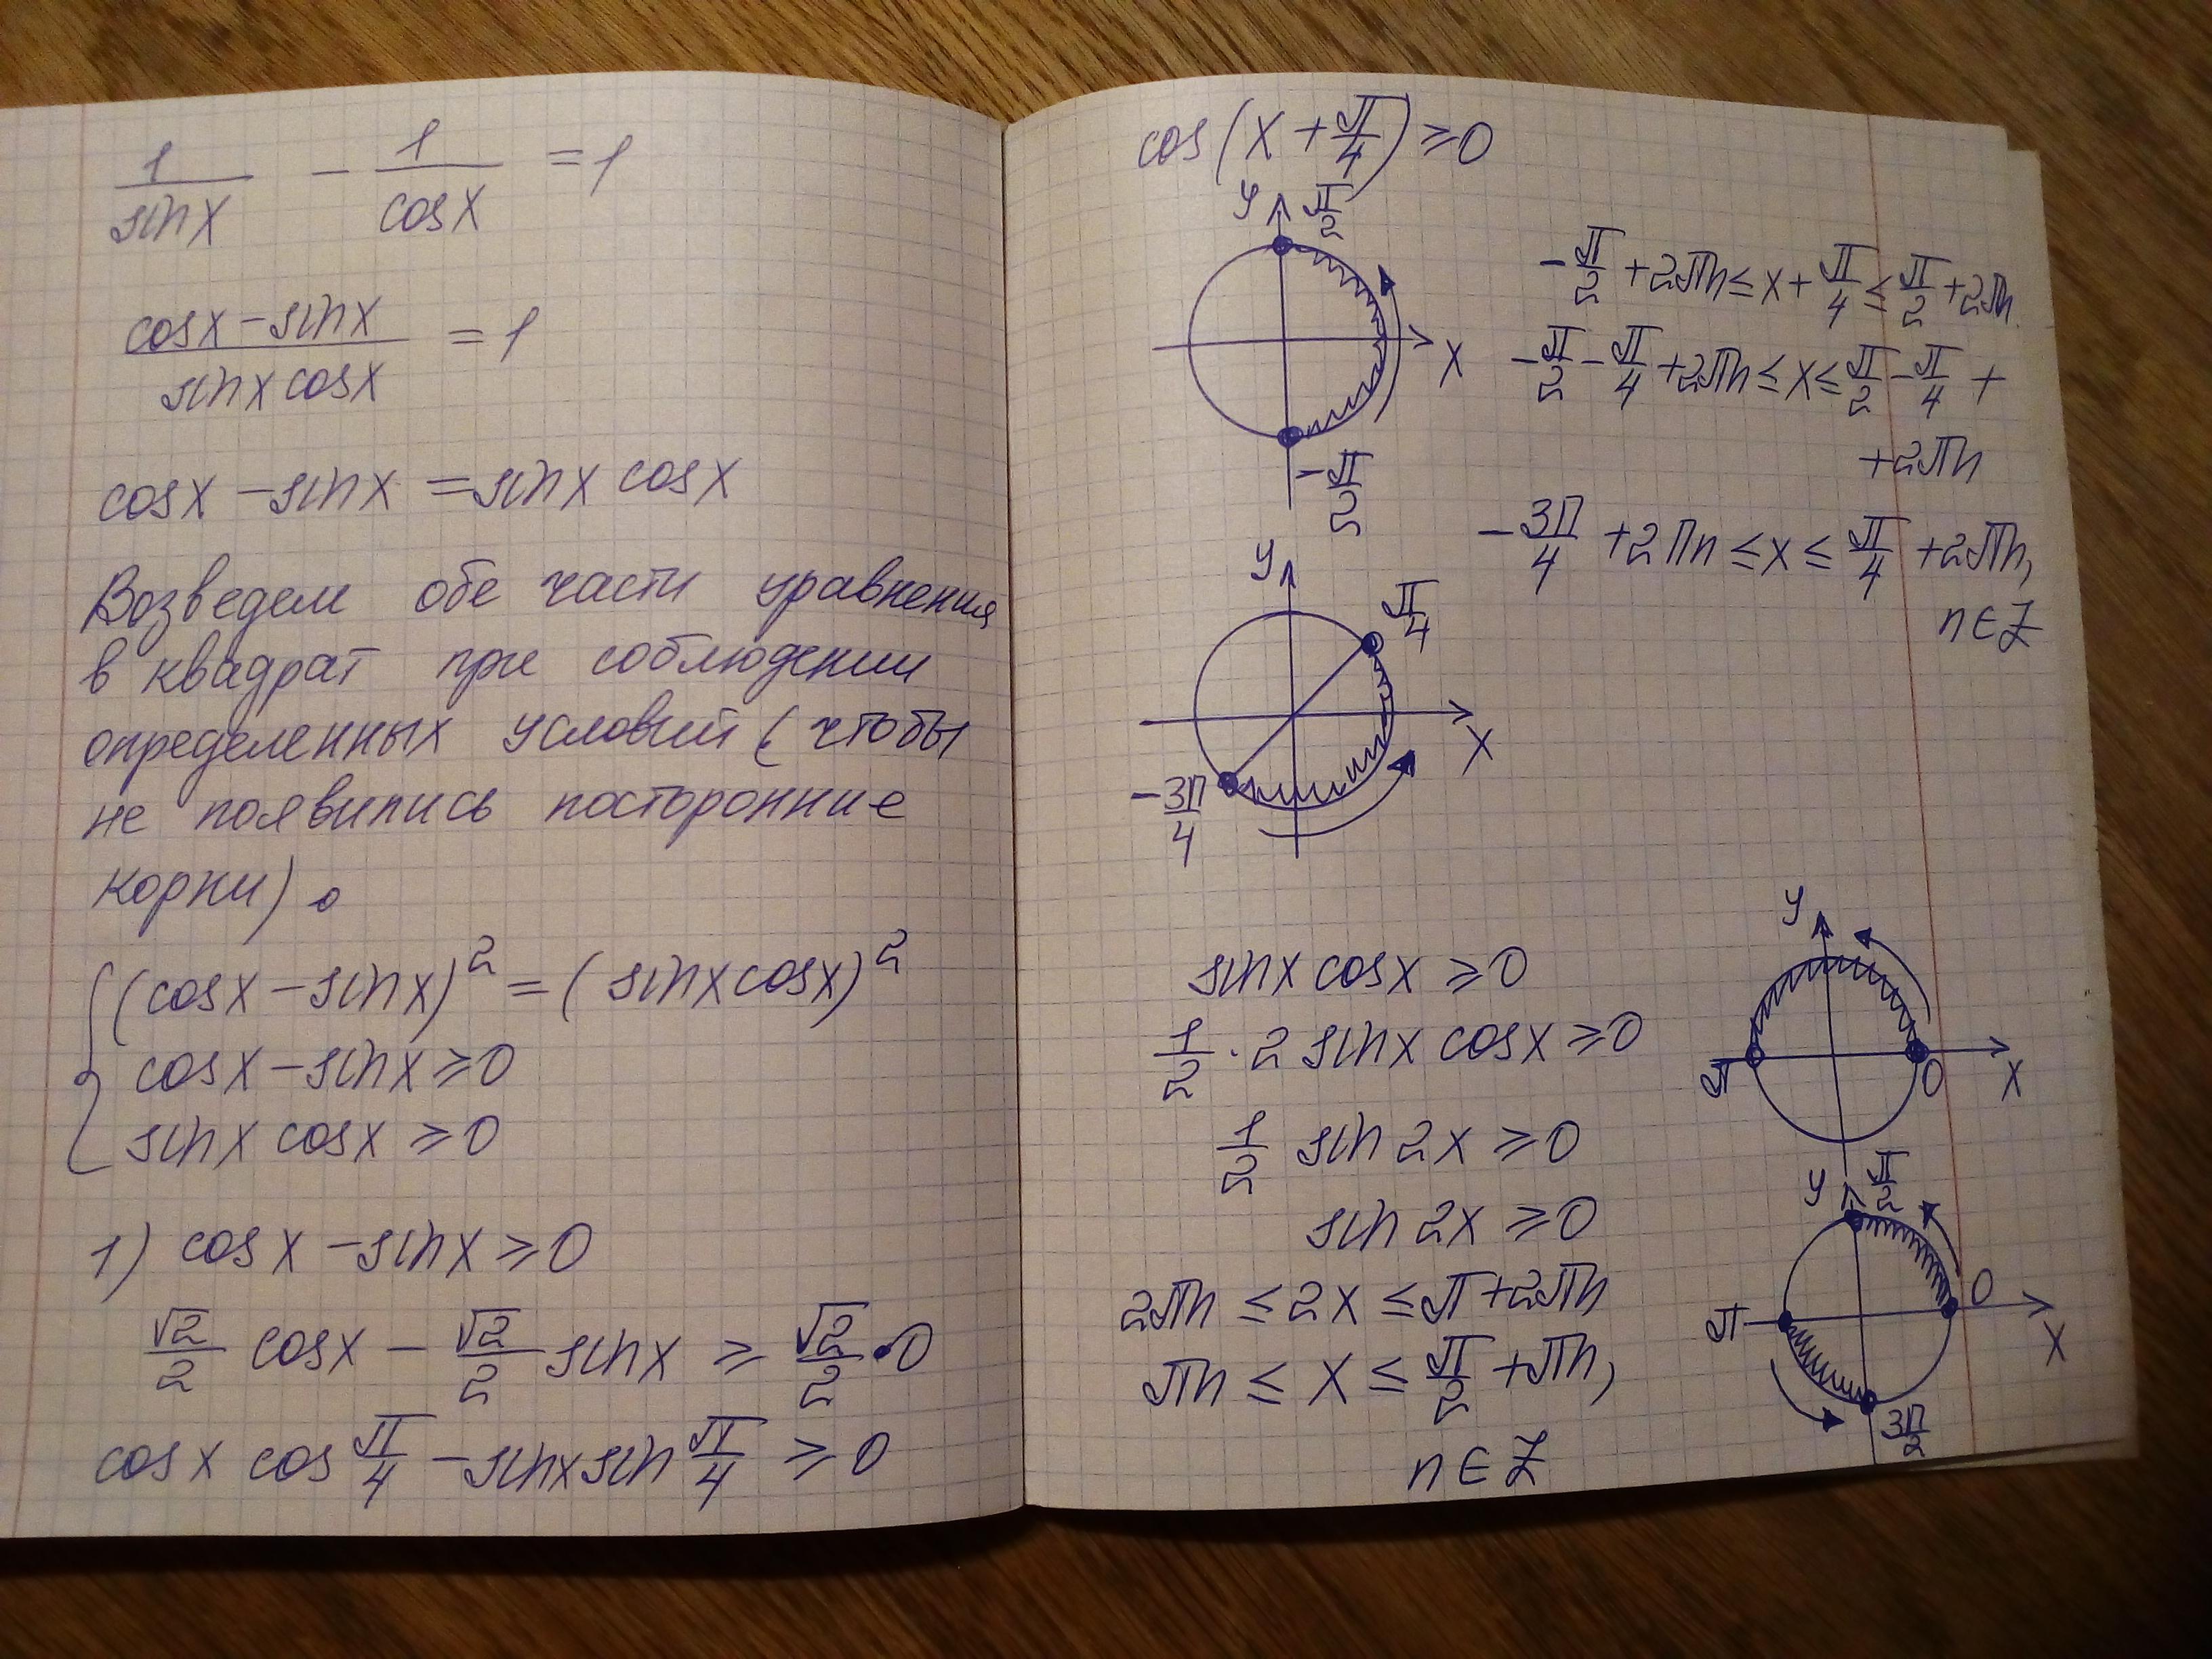 1/sinx - 1/cosx = 1
(cosx - sinx)/(sinx cosx) = 1
cosx - sinx = sinx cosx
Возведем обе части уравнения
в квадрат при соблюдении
определенных условий (чтобы
не появились посторонние
корни).
{ (cosx - sinx)² = (sinx cosx)²
cosx - sinx ≥ 0
sinx cosx ≥ 0
1) cosx - sinx ≥ 0
√2/2 cosx - √2/2 sinx ≥ √2/2 · 0
cosx cos π/4 - sinx sin π/4 ≥ 0
cos(x + π/4) ≥ 0
y π/2
x
-π/2
-π/2 + 2πn ≤ x + π/4 ≤ π/2 + 2πn
-π/2 - π/4 + 2πn ≤ x ≤ π/2 - π/4 +
+ 2πn
-3π/4 + 2πn ≤ x ≤ π/4 + 2πn,
n ∈ Z
y
π/4
x
-3π/4
sinx cosx ≥ 0
1/2 · 2 sinx cosx ≥ 0
1/2 sin 2x ≥ 0
sin 2x ≥ 0
2πn ≤ 2x ≤ π + 2πn
πn ≤ x ≤ π/2 + πn,
n ∈ Z
y
π 0 x
y π/2
π 0 x
3π/2